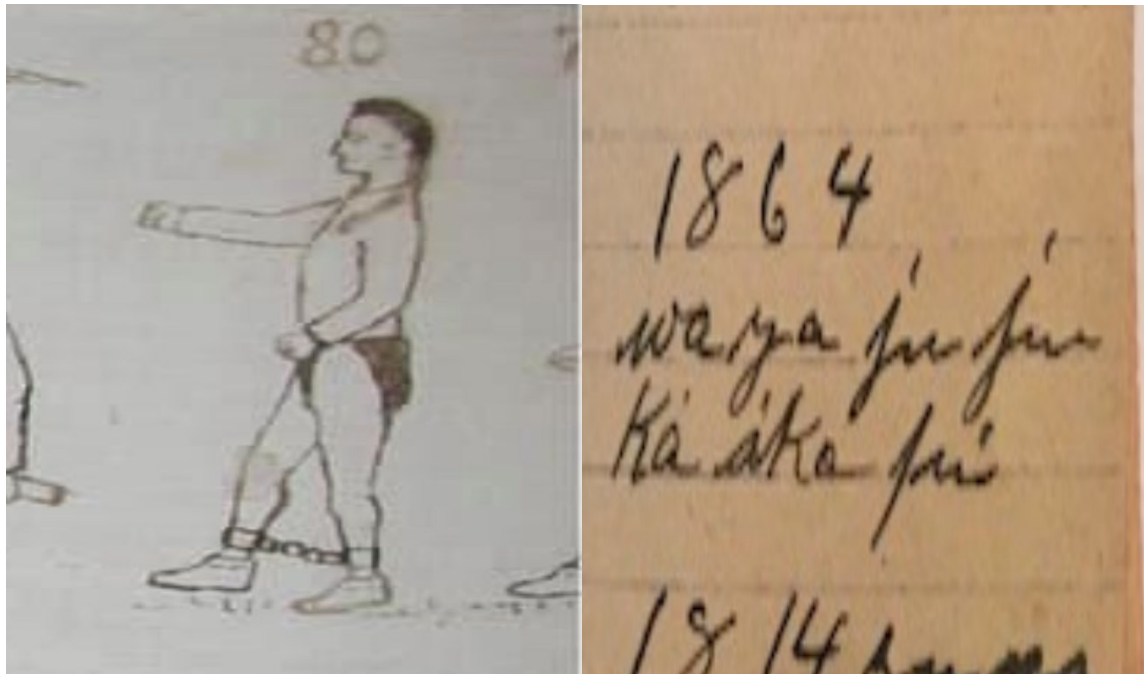 80
1864
waya ju ju
Ká áká jú
1814